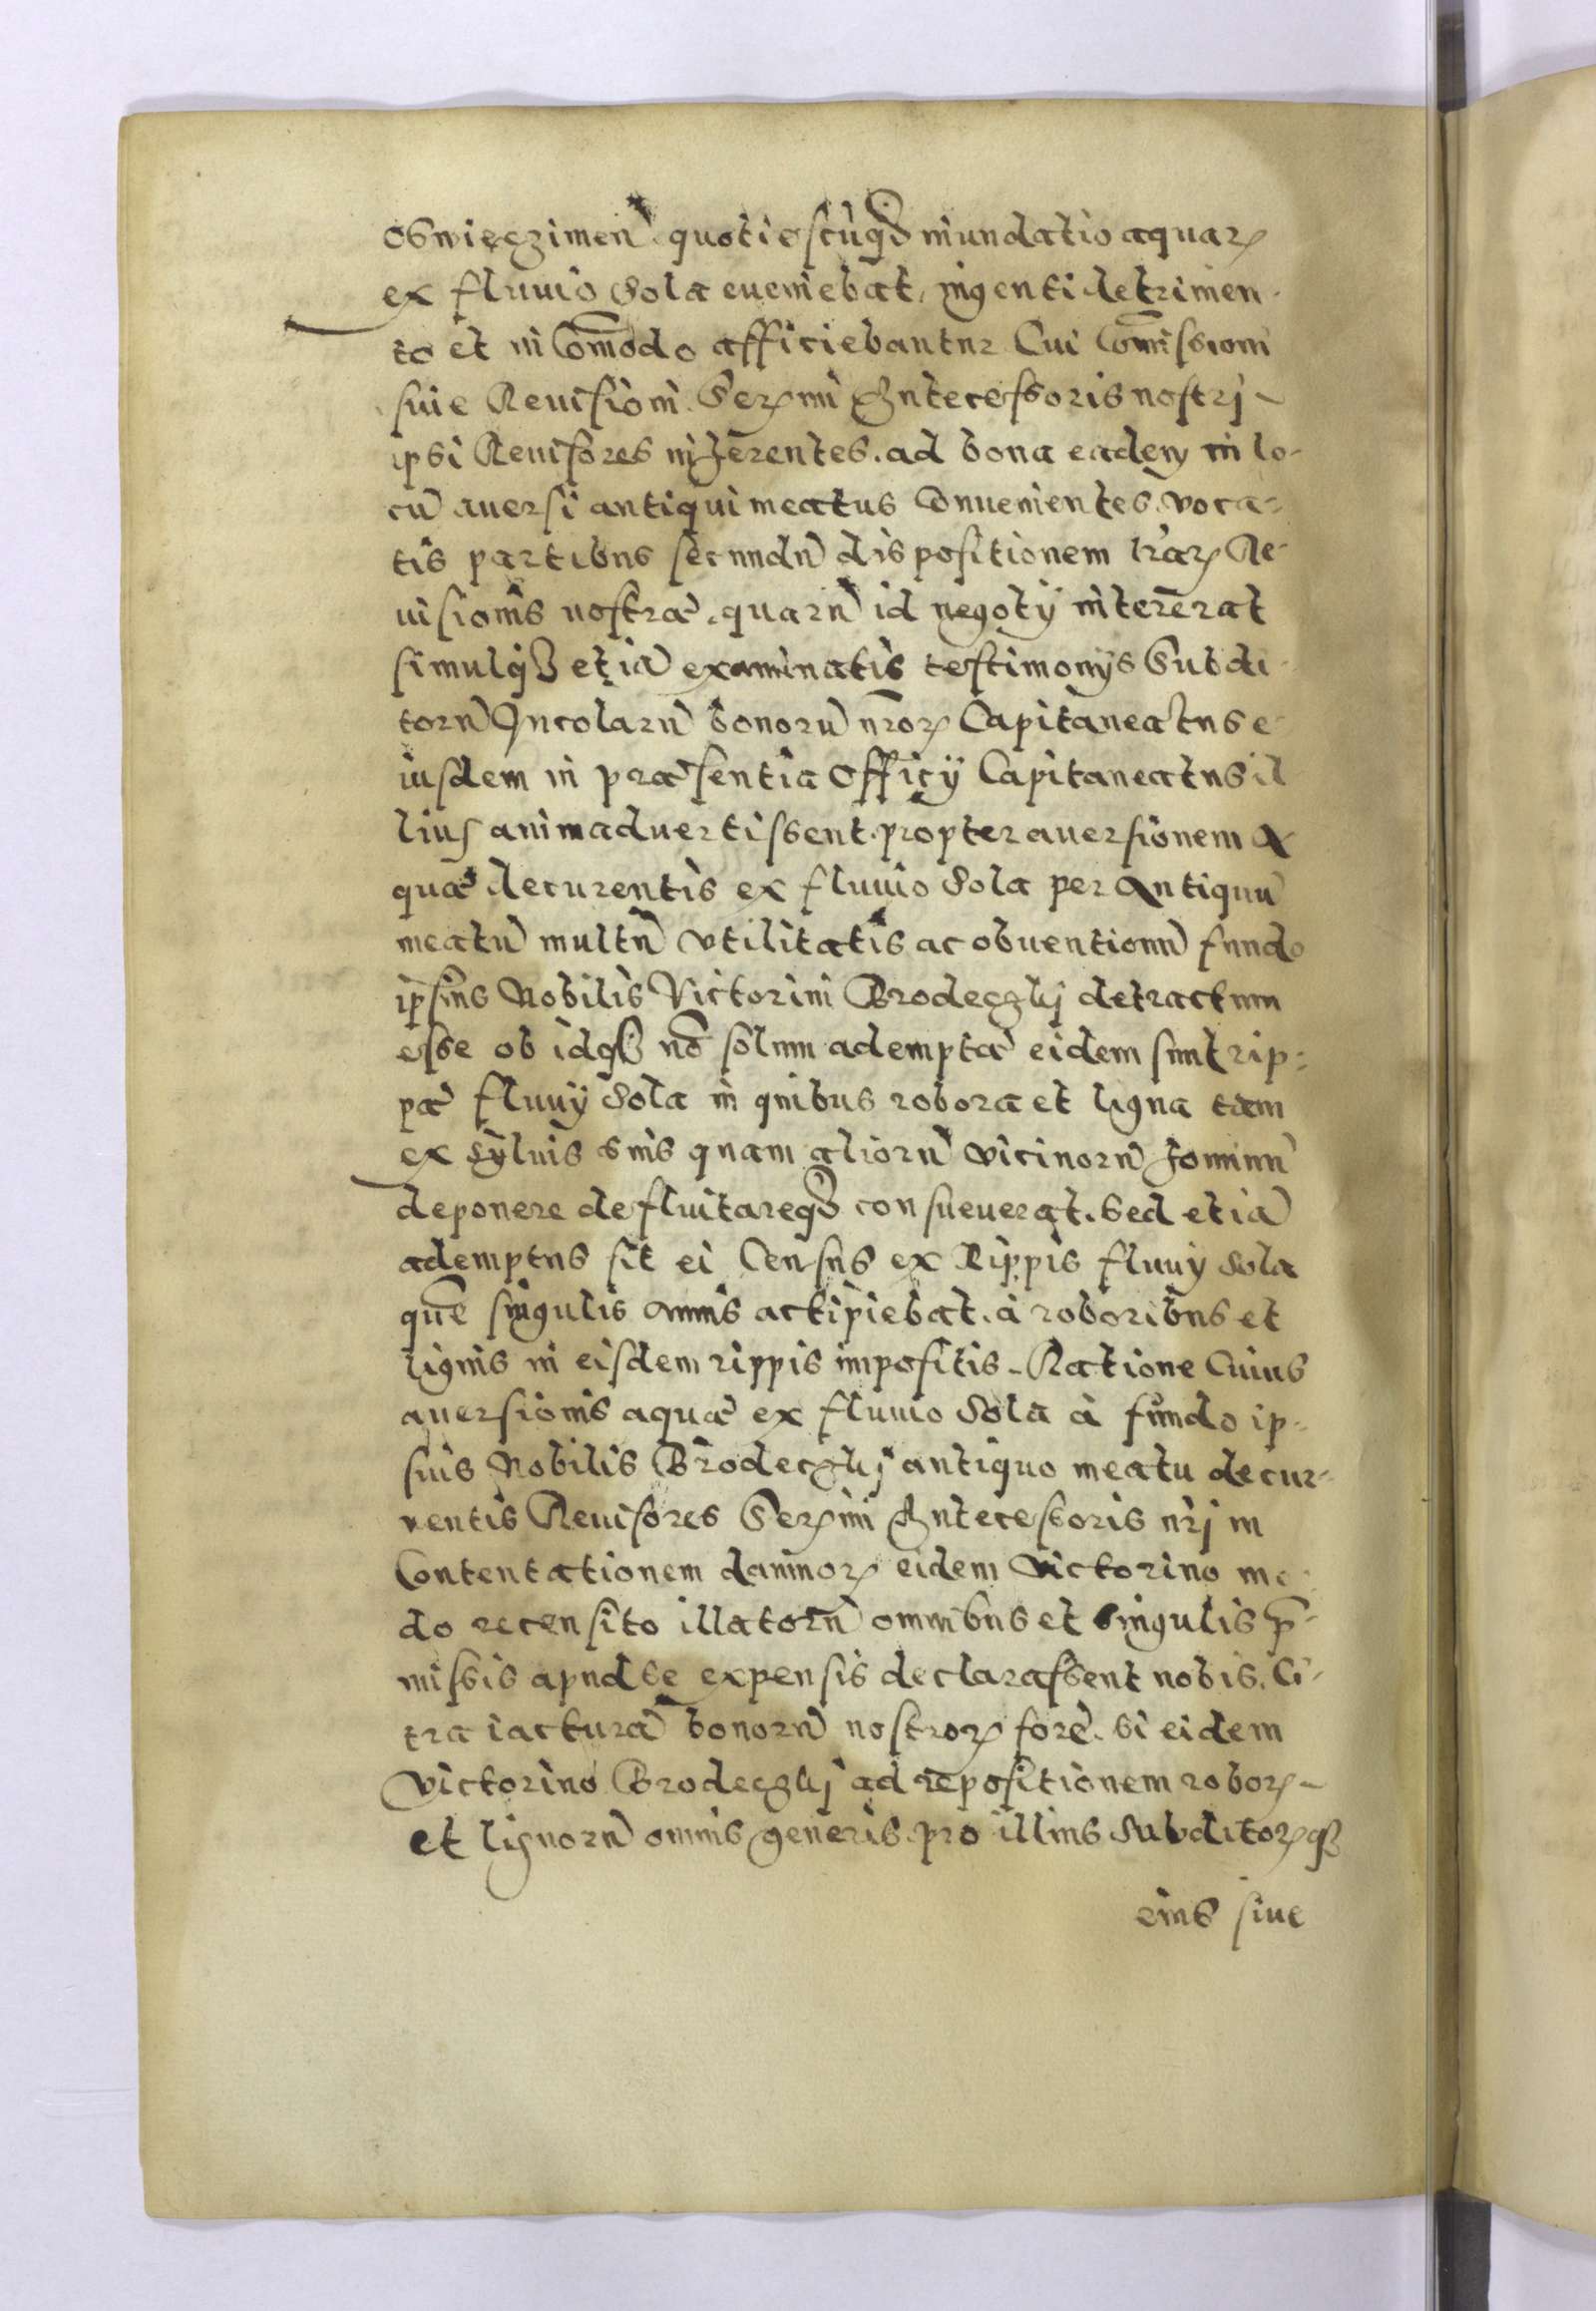 Oswieczimeñ quotiescūq3 inundatio aquaꝝ
ex fluuio Sola eueniebat, ingenti detrimen-
to et in com̄odo afficiebantur Cui Com̄issioni
siue Reuisioni Serꝫmi Antecessoris nostrj
ipsi Reuisores inhærentes. ad bona eadem in lo-
cū auersi antiqui meatus Conuenientes. voca-
tis partibus secundū dispositionem lr̄aꝝ Re-
uisionis nostræ. quarū id negotÿ intererat
simulq3 etiā examinatis testimonÿs Subdi-
torū Incolarū bonorū nr̄oꝝ Capitaneatus e-
iusdem in præsentia Officÿ Capitaneatus il
lius animaduertissent. propter auersionem a
quæ decurentis ex fluuio Sola per Antiquū
meatū multū vtilitatis ac obuentionū fundo
ipsius Nobilis Victorini Brodeczkj detractum
esse ob idq3 nō solum adempta eidem sunt rip-
pæ fluuÿ Sola in quibus robora et ligna tam
ex sÿluis suis quam aliorū vicinorū hominū
deponere defluitareq3 consueuerat. Sed etiā
ademptus sit ei Census ex Rippis fluuÿ Sola
quē singulis annis accipiebat. à roboribus et
lignis in eisdem rippis impositis. Ratione Cuius
auersionis aquæ ex fluuio Sola à fundo ip-
sius Nobilis Brodeczkj antiquo meatu decur-
rentis Reuisores Serꝫmi Antecessoris nr̄j in
Contentationem damnoꝝ eidem Victorino mo-
do recensito illatorū omnibus et singulis p̄-
missis apud se expensis declarassent nobis. Ci-
tra iacturā bonorū nostroꝝ fore. Si eidem
Victorino Brodeczkj ad repositionem roboꝝ
et lignorū omnis generis pro illius Subditoꝝq3
eius siue